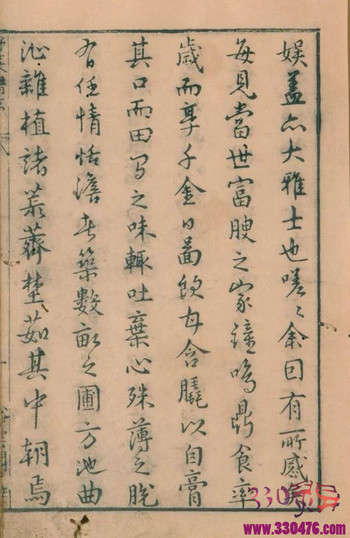 娱盖亦大雅士也嗟〻余因有所感焉
每見當世富腴之家鐘鳴鼎食率
歲而享千金日啚飲甘含脆以自膏
其口而田間之味輒吐棄心殊薄之脫
有任情恬澹者築數畝之圃方池曲
沁雜植諸菜薺埜茹其中朝焉
330476
www.330476.com